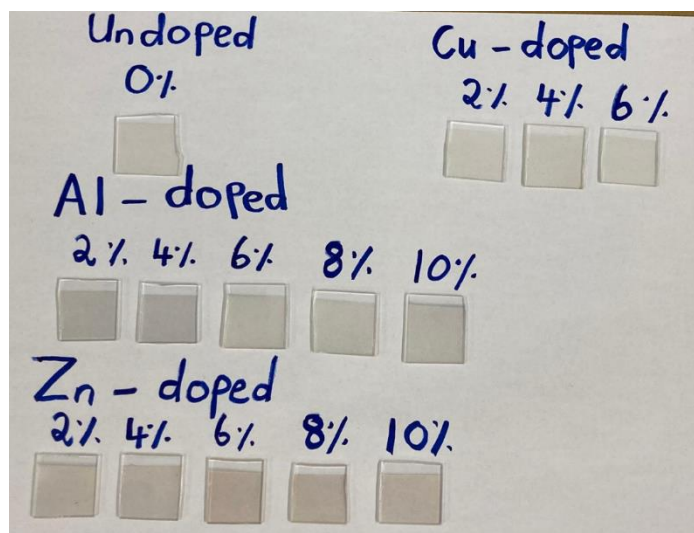 Undoped
0%
Cu - doped
2% 4% 6%
Al - doped
2% 4% 6% 8% 10%
Zn - doped
2% 4% 6% 8% 10%